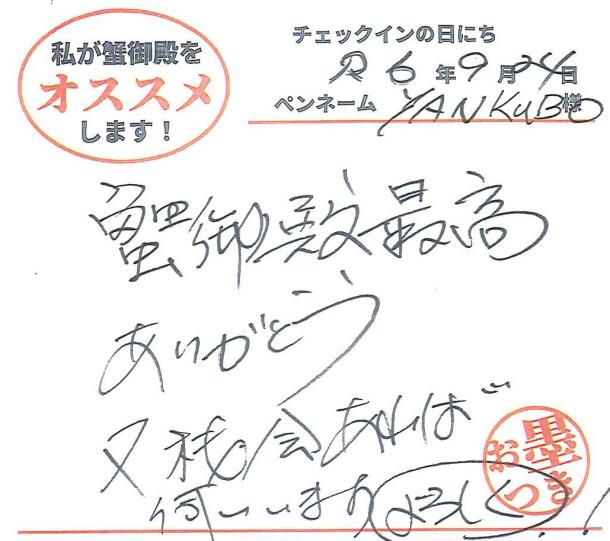 私が蟹御殿を
オススメ
します！
チェックインの日にち
R 6 年 9 月 24 日
ペンネーム YANKUBO 様
蟹御殿最高
ありがとう
又機会あれば
伺いますよろしく！
お墨つき